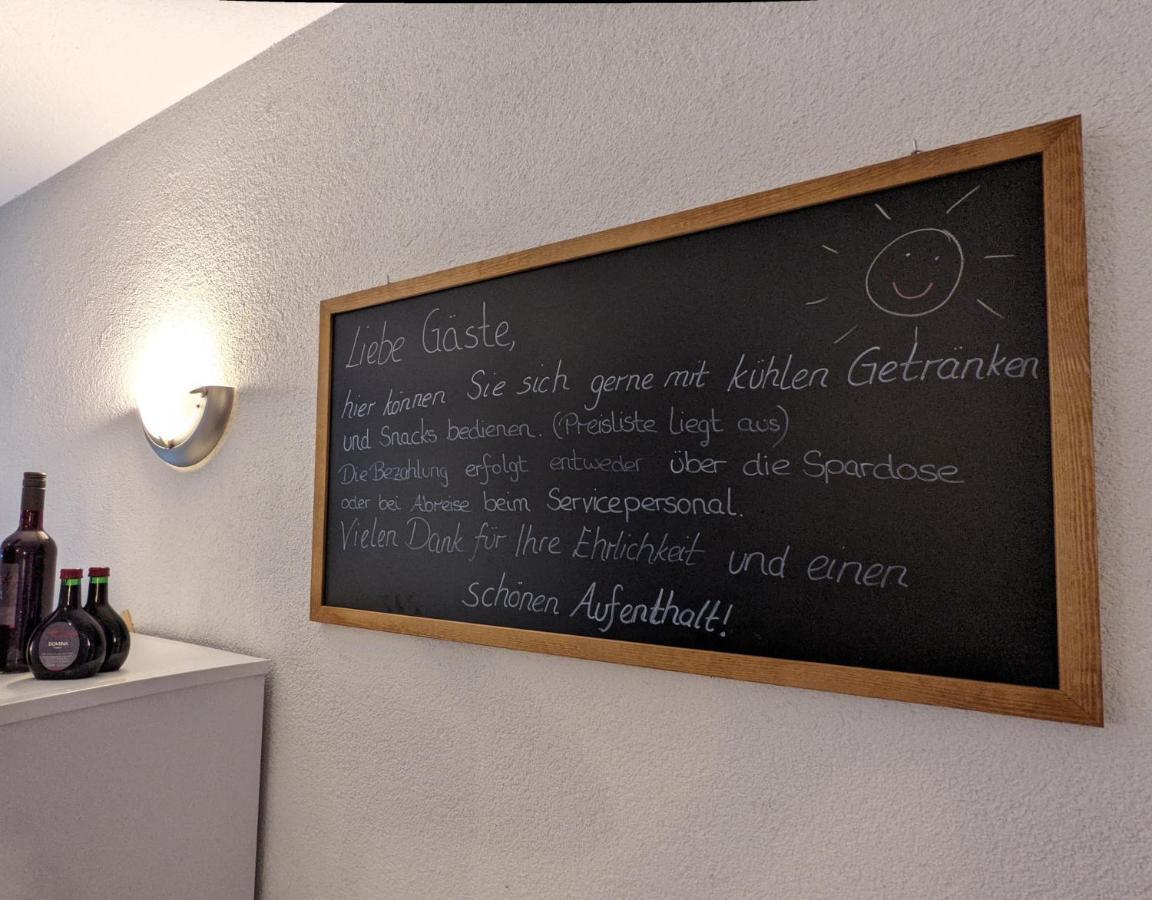 Liebe Gäste,
hier können Sie sich gerne mit kühlen Getränken
und Snacks bedienen. (Preisliste liegt aus)
Die Bezahlung erfolgt entweder über die Spardose
oder bei Abreise beim Servicepersonal.
Vielen Dank für Ihre Ehrlichkeit und einen
schönen Aufenthalt!
DOMINA